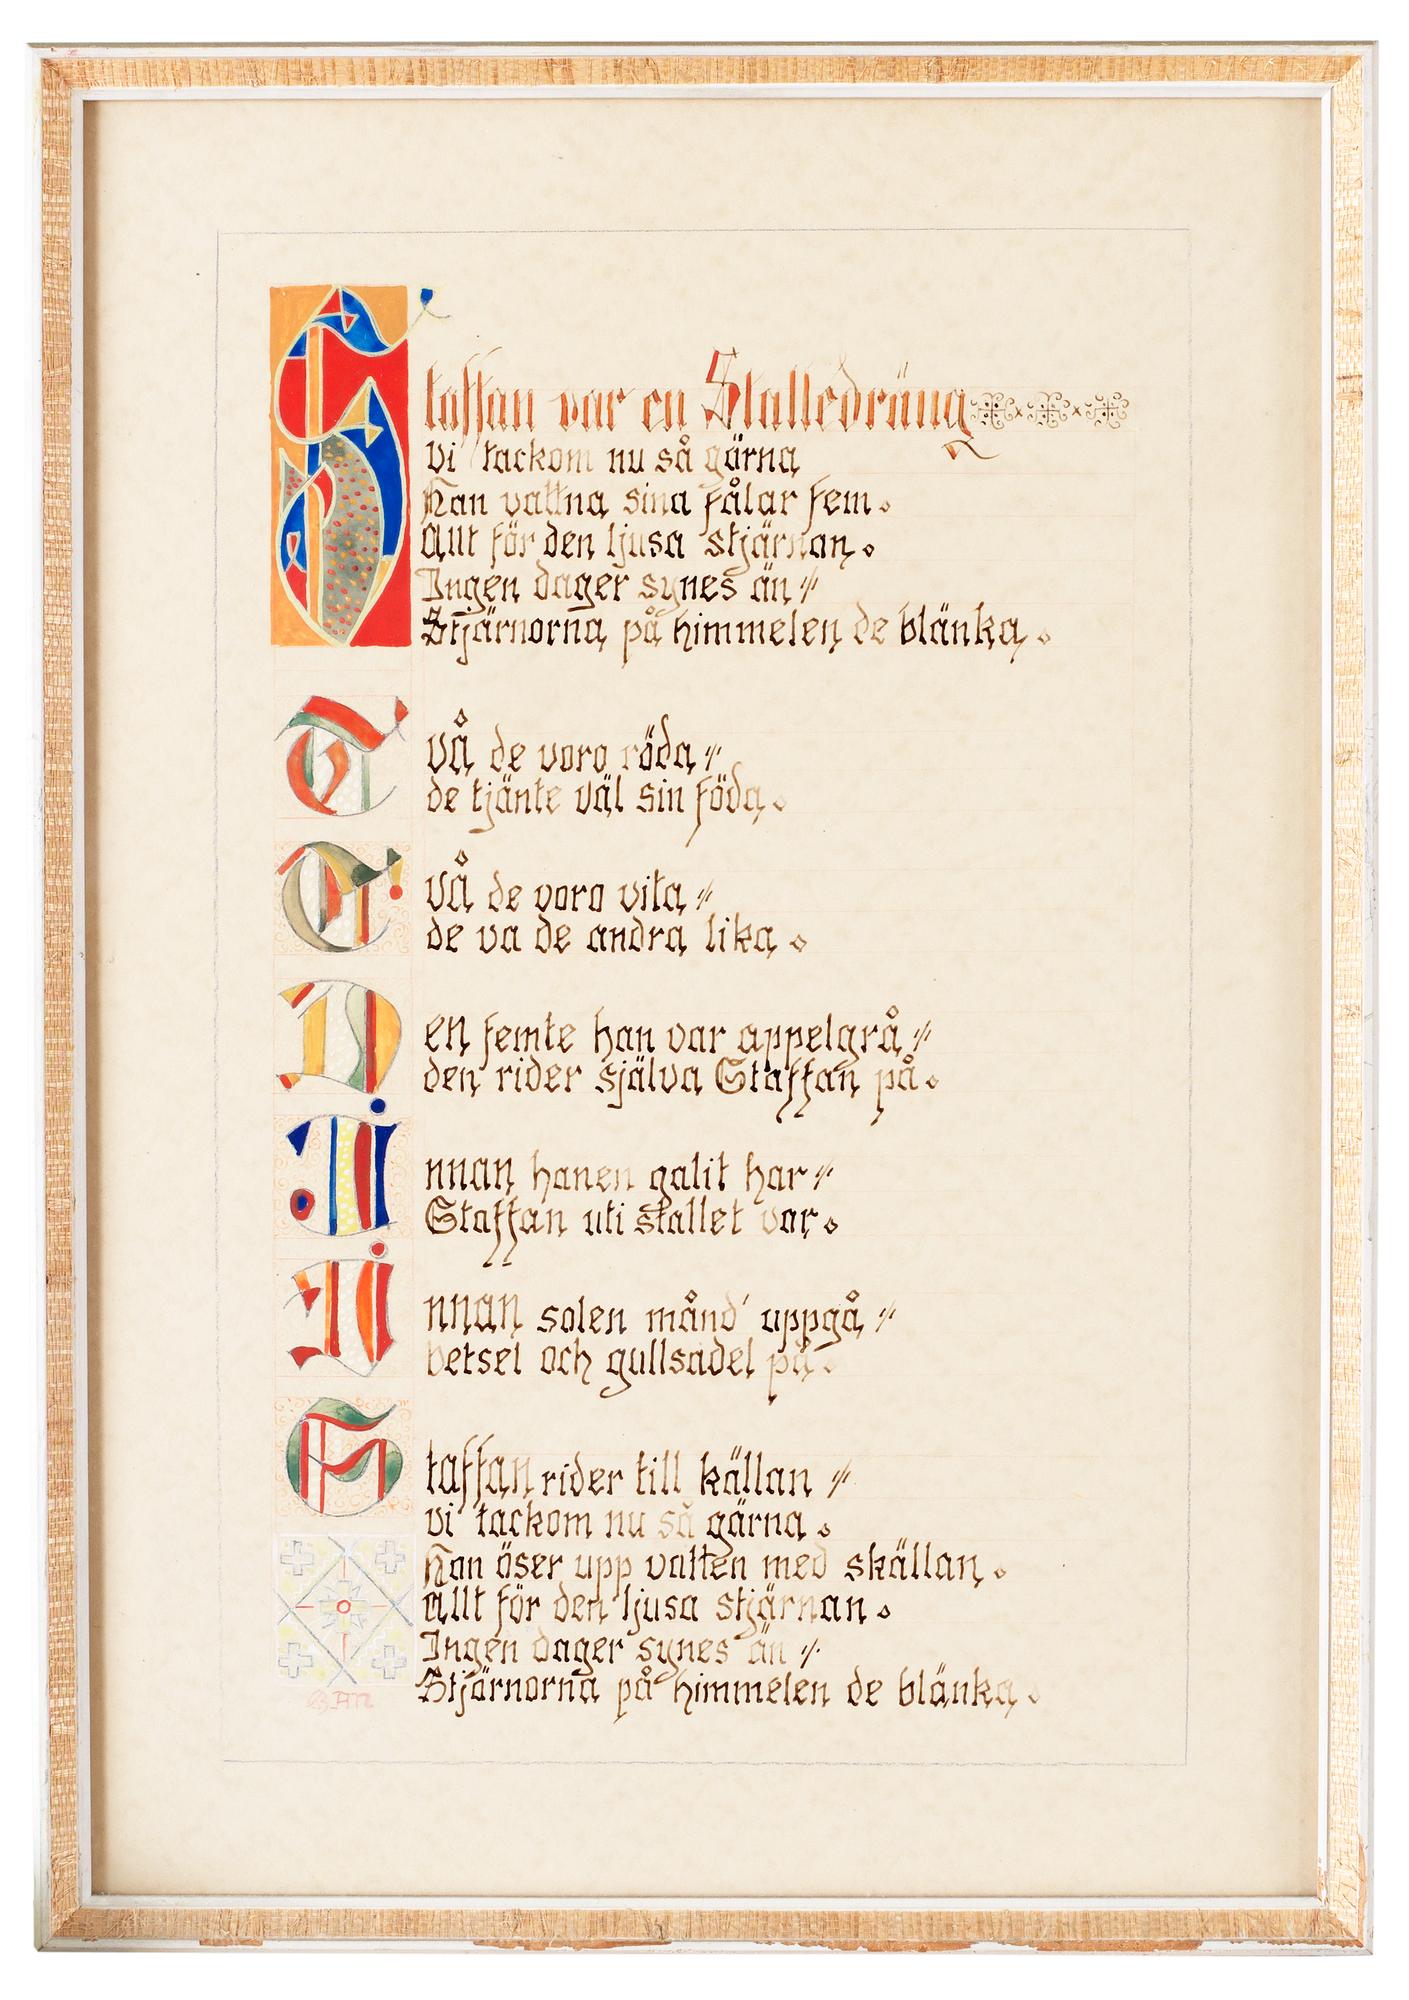 Staffan var en Stalledräng
vi tackom nu så gärna
Han vattna sina fålar fem.
Allt för den ljusa stjärnan.
Ingen dager synes än //
Stjärnorna på himmelen de blänka.
Två de voro röda //
de tjänte väl sin föda.
Två de voro vita //
de va de andra lika.
Den femte han var appelgrå //
den rider själva Staffan på.
Innan hanen galit har //
Staffan uti stallet var.
Innan solen månd' uppgå //
betsel och gullsadel på.
Staffan rider till källan //
vi tackom nu så gärna.
Han öser upp vatten med skällan.
Allt för den ljusa stjärnan.
Ingen dager synes än //
Stjärnorna på himmelen de blänka.